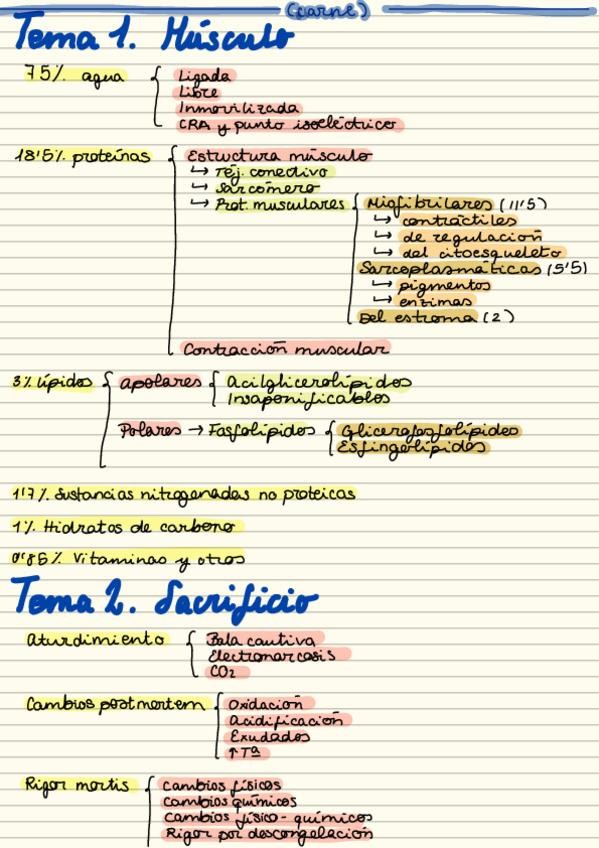 (carne)
Tema 1. Músculo
75% agua
Ligada
Libre
Inmovilizada
CRA y punto isoeléctrico
18'5% proteínas
Estructura músculo
↳ Tej. conectivo
↳ Sarcómero
↳ Prot. musculares
Miofibrilares (11'5)
↳ contráctiles
↳ de regulación
↳ del citoesqueleto
Sarcoplasmáticas (5'5)
↳ pigmentos
↳ enzimas
Del estroma (2)
Contracción muscular
3% lípidos
Apolares
Acilglicerolípidos
Insaponificables
Polares → Fosfolípidos
Glicerofosfolípidos
Esfingolípidos
1'7% Sustancias nitrogenadas no proteicas
1% Hidratos de carbono
0'85% Vitaminas y otros
Tema 2. Sacrificio
Aturdimiento
Bala cautiva
Electronarcosis
CO₂
Cambios postmortem
Oxidación
Acidificación
Exudados
↑Tª
Rigor mortis
Cambios físicos
Cambios químicos
Cambios físico-químicos
Rigor por descongelación